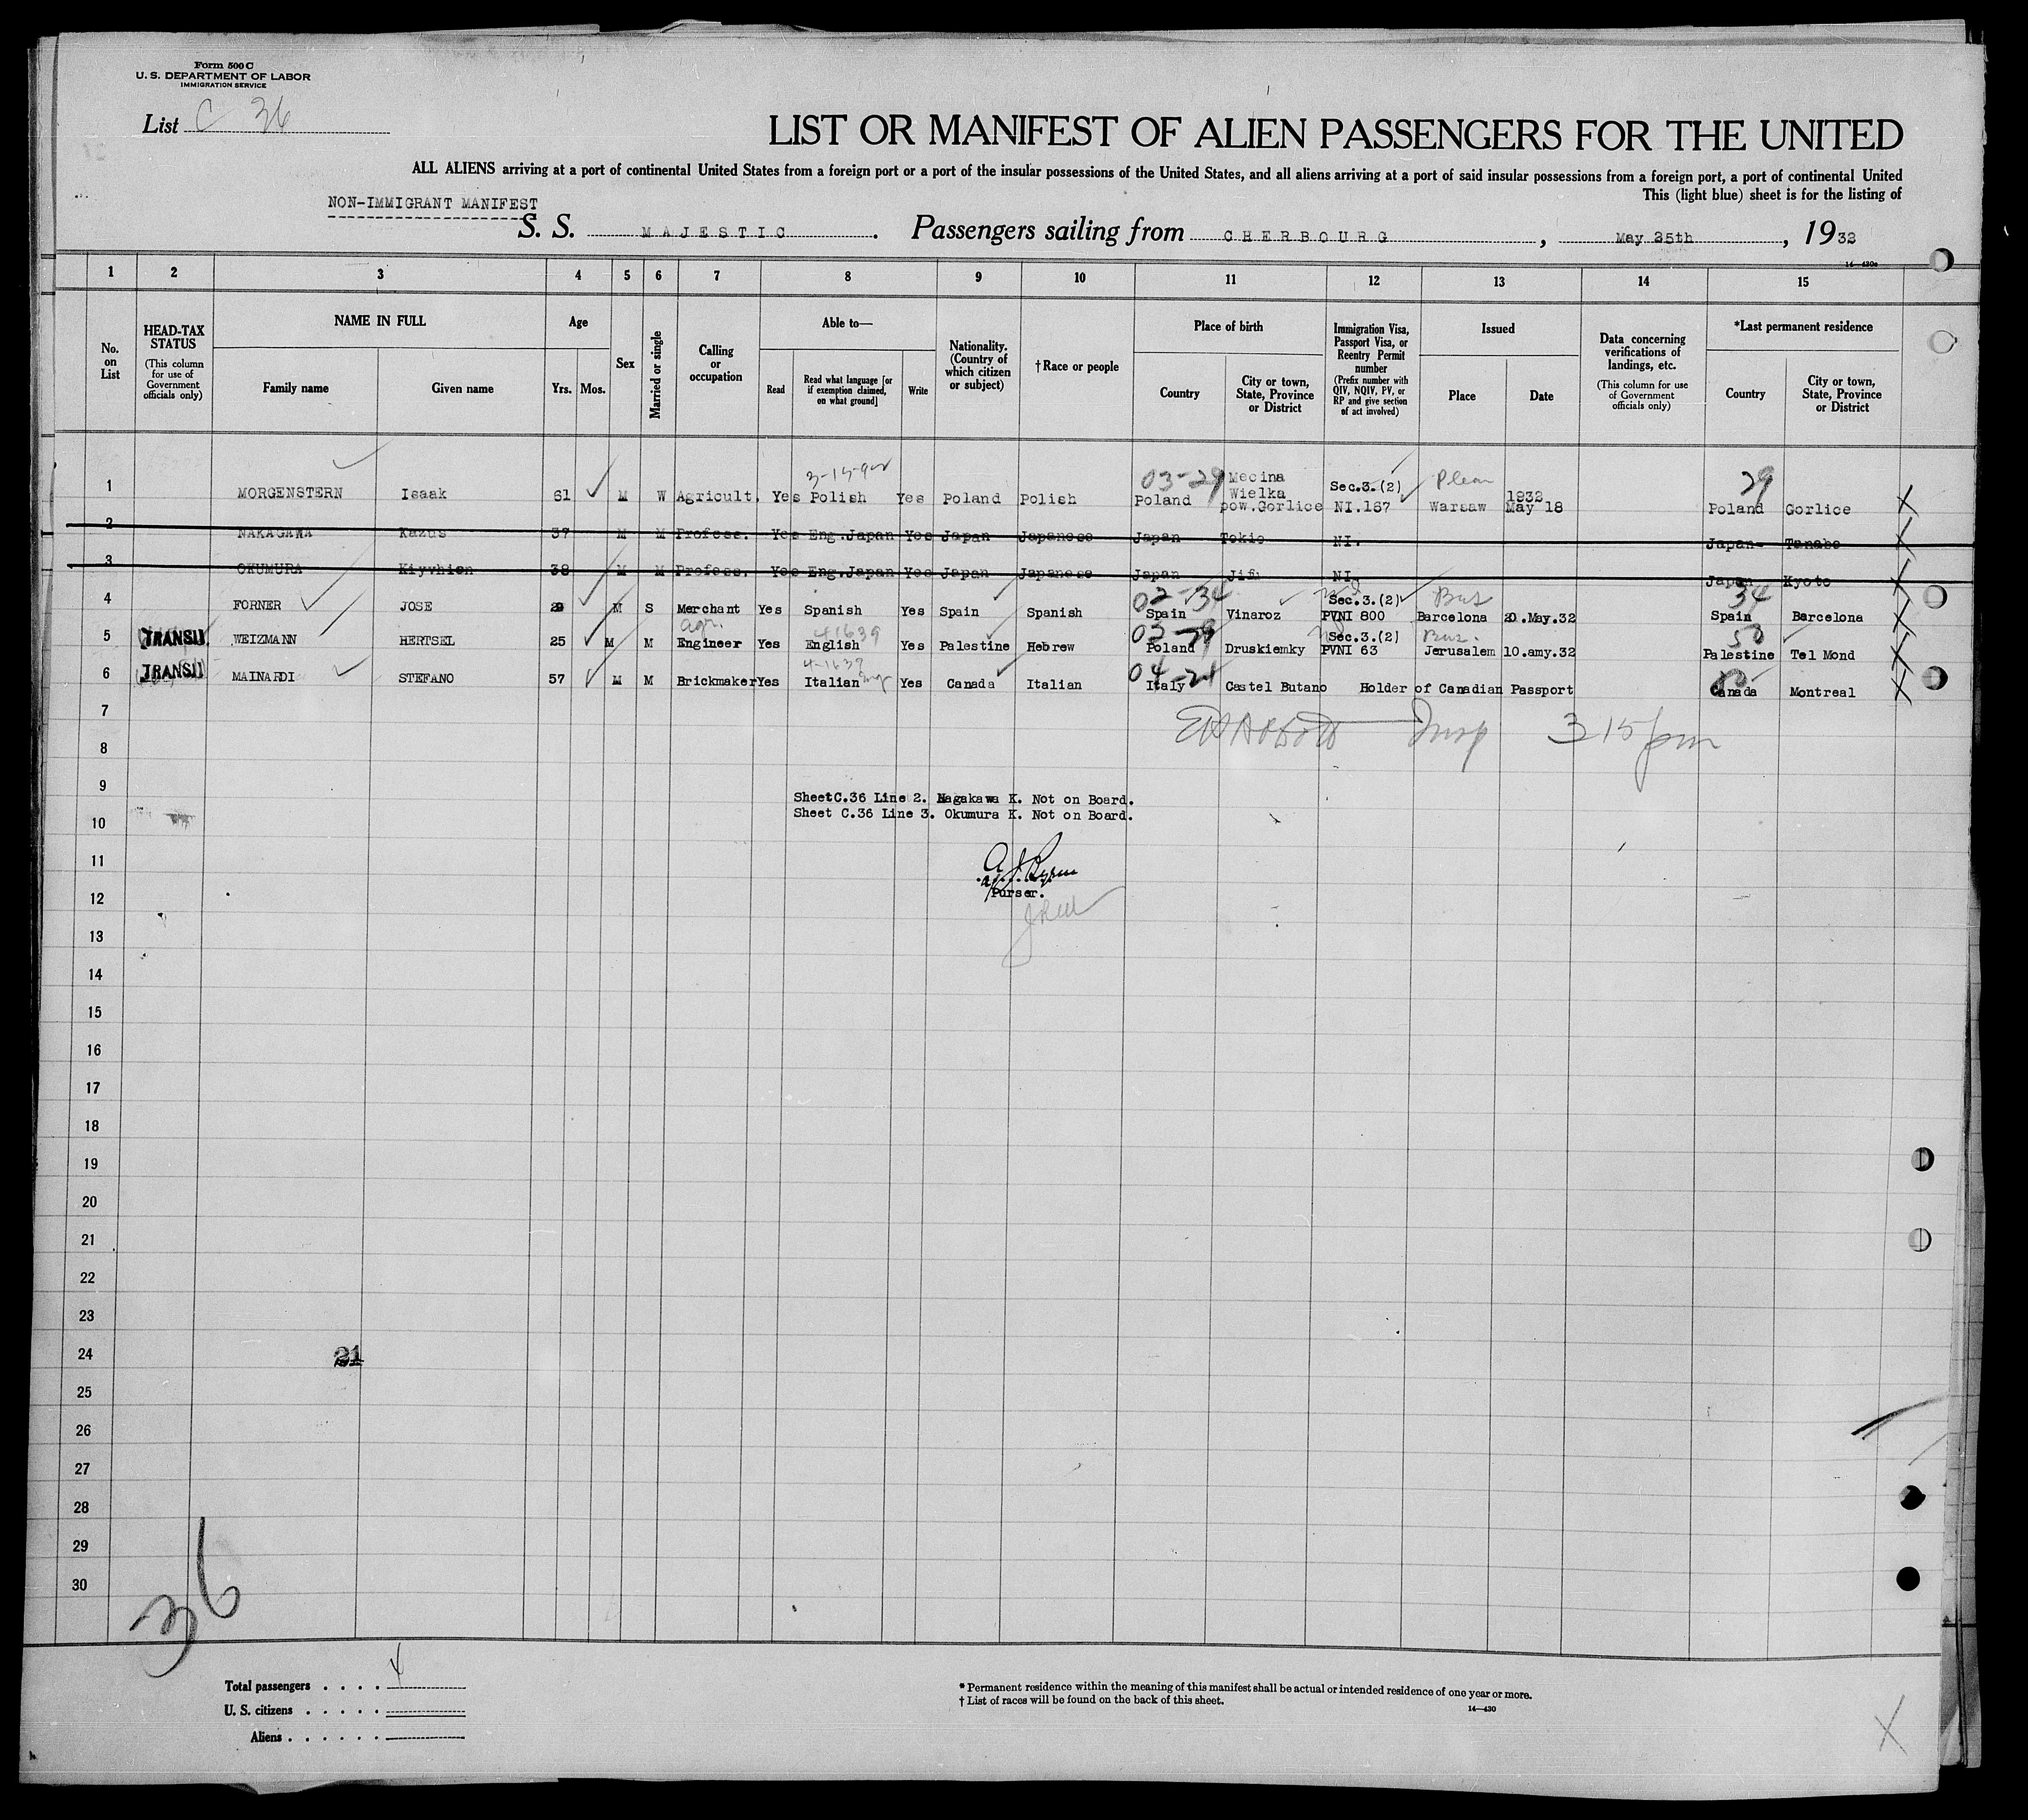 Form 500 C
U. S. DEPARTMENT OF LABOR
IMMIGRATION SERVICE
List C 36
LIST OR MANIFEST OF ALIEN PASSENGERS FOR THE UNITED
ALL ALIENS arriving at a port of continental United States from a foreign port or a port of the insular possessions of the United States, and all aliens arriving at a port of said insular possessions from a foreign port, a port of continental United
This (light blue) sheet is for the listing of
NON-IMMIGRANT MANIFEST
S. S. MAJESTIC. Passengers sailing from CHERBOURG, May 25th, 1932
14—430a
1 2 3 4 5 6 7 8 9 10 11 12 13 14 15
No. on List
HEAD-TAX STATUS (This column for use of Government officials only)
NAME IN FULL
Family name Given name
Age
Yrs. Mos.
Sex
Married or single
Calling or occupation
Able to—
Read
Read what language [or if exemption claimed, on what ground]
Write
Nationality. (Country of which citizen or subject)
†Race or people
Place of birth
Country
City or town, State, Province or District
Immigration Visa, Passport Visa, or Reentry Permit number (Prefix number with QIV, NQIV, PV, or RP and give section of act involved)
Issued
Place Date
Data concerning verifications of landings, etc. (This column for use of Government officials only)
*Last permanent residence
Country
City or town, State, Province or District
03-29 29
1 MORGENSTERN Isaak 61 M W Agricult. Yes Polish Yes Poland Polish Poland Mecina Wielka pow.Gorlice Sec.3.(2) NI.167 Warsaw 1932 May 18 Poland Gorlice X
2 NAKAGAWA Kazus 37 M M Profess. Yes Eng.Japan Yes Japan Japanese Japan Tokio NI. Japan Tanabe X
3 OKUMURA Kiyvhien 38 M M Profess. Yes Eng.Japan Yes Japan Japanese Japan Jifu NI. Japan Kyoto X
02-34 34
4 FORNER JOSE 29 M S Merchant Yes Spanish Yes Spain Spanish Spain Vinaroz Sec.3.(2) PVNI 800 Barcelona 20.May.32 Spain Barcelona X
Agr. 41639
5 TRANSIT WEIZMANN HERTSEL 25 M M Engineer Yes English Yes Palestine Hebrew Poland Druskiemky Sec.3.(2) PVNI 63 Jerusalem 10.amy.32 Palestine Tel Mond X
6 TRANSIT MAINARDI STEFANO 57 M M Brickmaker Yes Italian Eng Yes Canada Italian Italy Castel Butano Holder of Canadian Passport Canada Montreal X
7
Insp 3 15 pm
8
9
SheetC.36 Line 2. Nagakawa K. Not on Board.
Sheet C.36 Line 3. Okumura K. Not on Board.
10
11
Purser.
12
13
14
15
16
17
18
19
20
21
22
23
24
21
25
26
27
28
29
30
36
Total passengers . . . . 4
U. S. citizens . . . . .
Aliens . . . . . .
* Permanent residence within the meaning of this manifest shall be actual or intended residence of one year or more.
† List of races will be found on the back of this sheet.
14—430
X